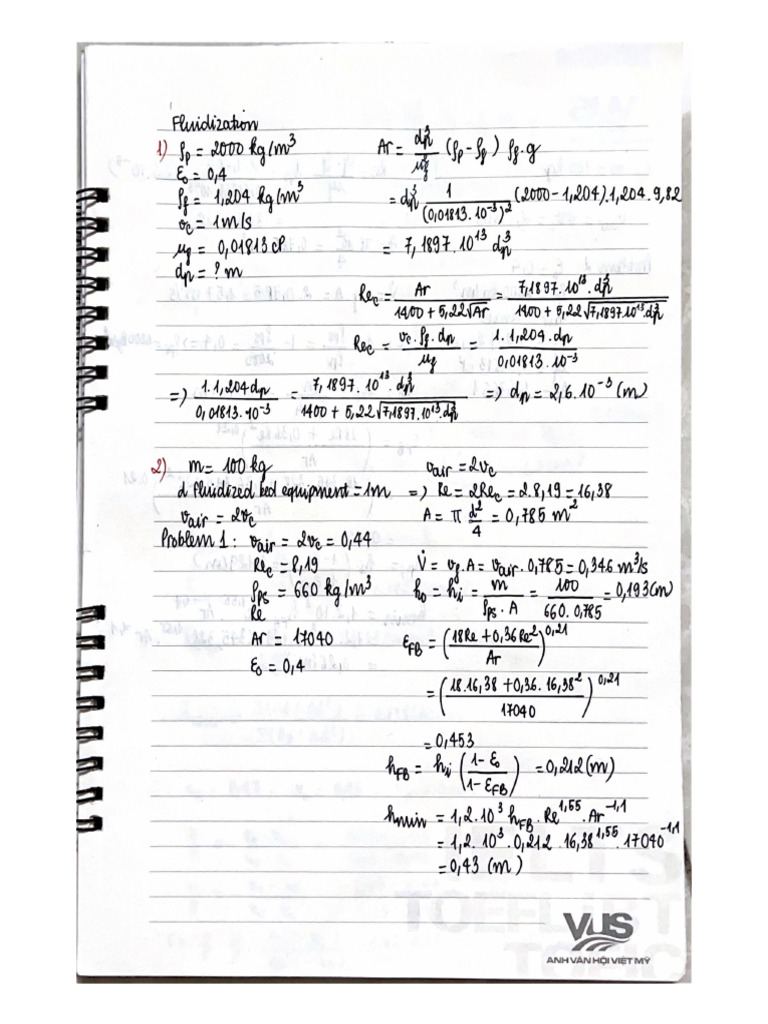 Fluidization
1) ρp = 2000 kg/m³
ε₀ = 0,4
ρf = 1,204 kg/m³
vc = 1m/s
μg = 0,01813 cP
dp = ? m
Ar = dp³/μg² (ρp - ρf) ρf . g
= dp³ 1/(0,01813.10⁻³)² (2000 - 1,204).1,204.9,82
= 7,1897.10¹³ dp³
Rec = Ar/(1400 + 5,22√Ar) = 7,1897.10¹³.dp³/(1400 + 5,22√(7,1897.10¹³.dp³))
Rec = vc.ρf.dp/μg = 1.1,204.dp/(0,01813.10⁻³)
=> 1.1,204dp/(0,01813.10⁻³) = 7,1897.10¹³.dp³/(1400 + 5,22√(7,1897.10¹³.dp³)) => dp = 2,6.10⁻³ (m)
2) m = 100 kg
d fluidized bed equipment = 1m
vair = 2vc
vair = 2vc
=> Re = 2Rec = 2.8,19 = 16,38
A = π d²/4 = 0,785 m²
Problem 1: vair = 2vc = 0,44
Rec = 8,19
ρps = 660 kg/m³
Re
Ar = 17040
ε₀ = 0,4
V̇ = vg.A = vair.0,785 = 0,346 m³/s
h₀ = hi = m/(ρps.A) = 100/(660.0,785) = 0,193(m)
εFB = ((18Re + 0,36Re²)/Ar)^0,21
= ((18.16,38 + 0,36.16,38²)/17040)^0,21
= 0,453
hFB = hi ((1 - ε₀)/(1 - εFB)) = 0,212 (m)
hmin = 1,2.10³ hFB.Re^1,55.Ar^-1,1
= 1,2.10³.0,212.16,38^1,55.17040^-1,1
= 0,43 (m)
VUS
ANH VĂN HỘI VIỆT MỸ